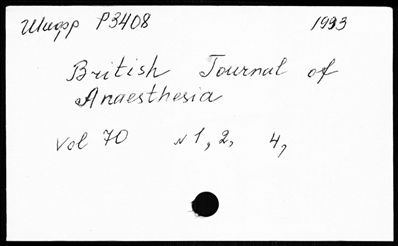 Шифр P3408 1993
British Journal of
Anaesthesia
Vol 70 N 1, 2, 4,